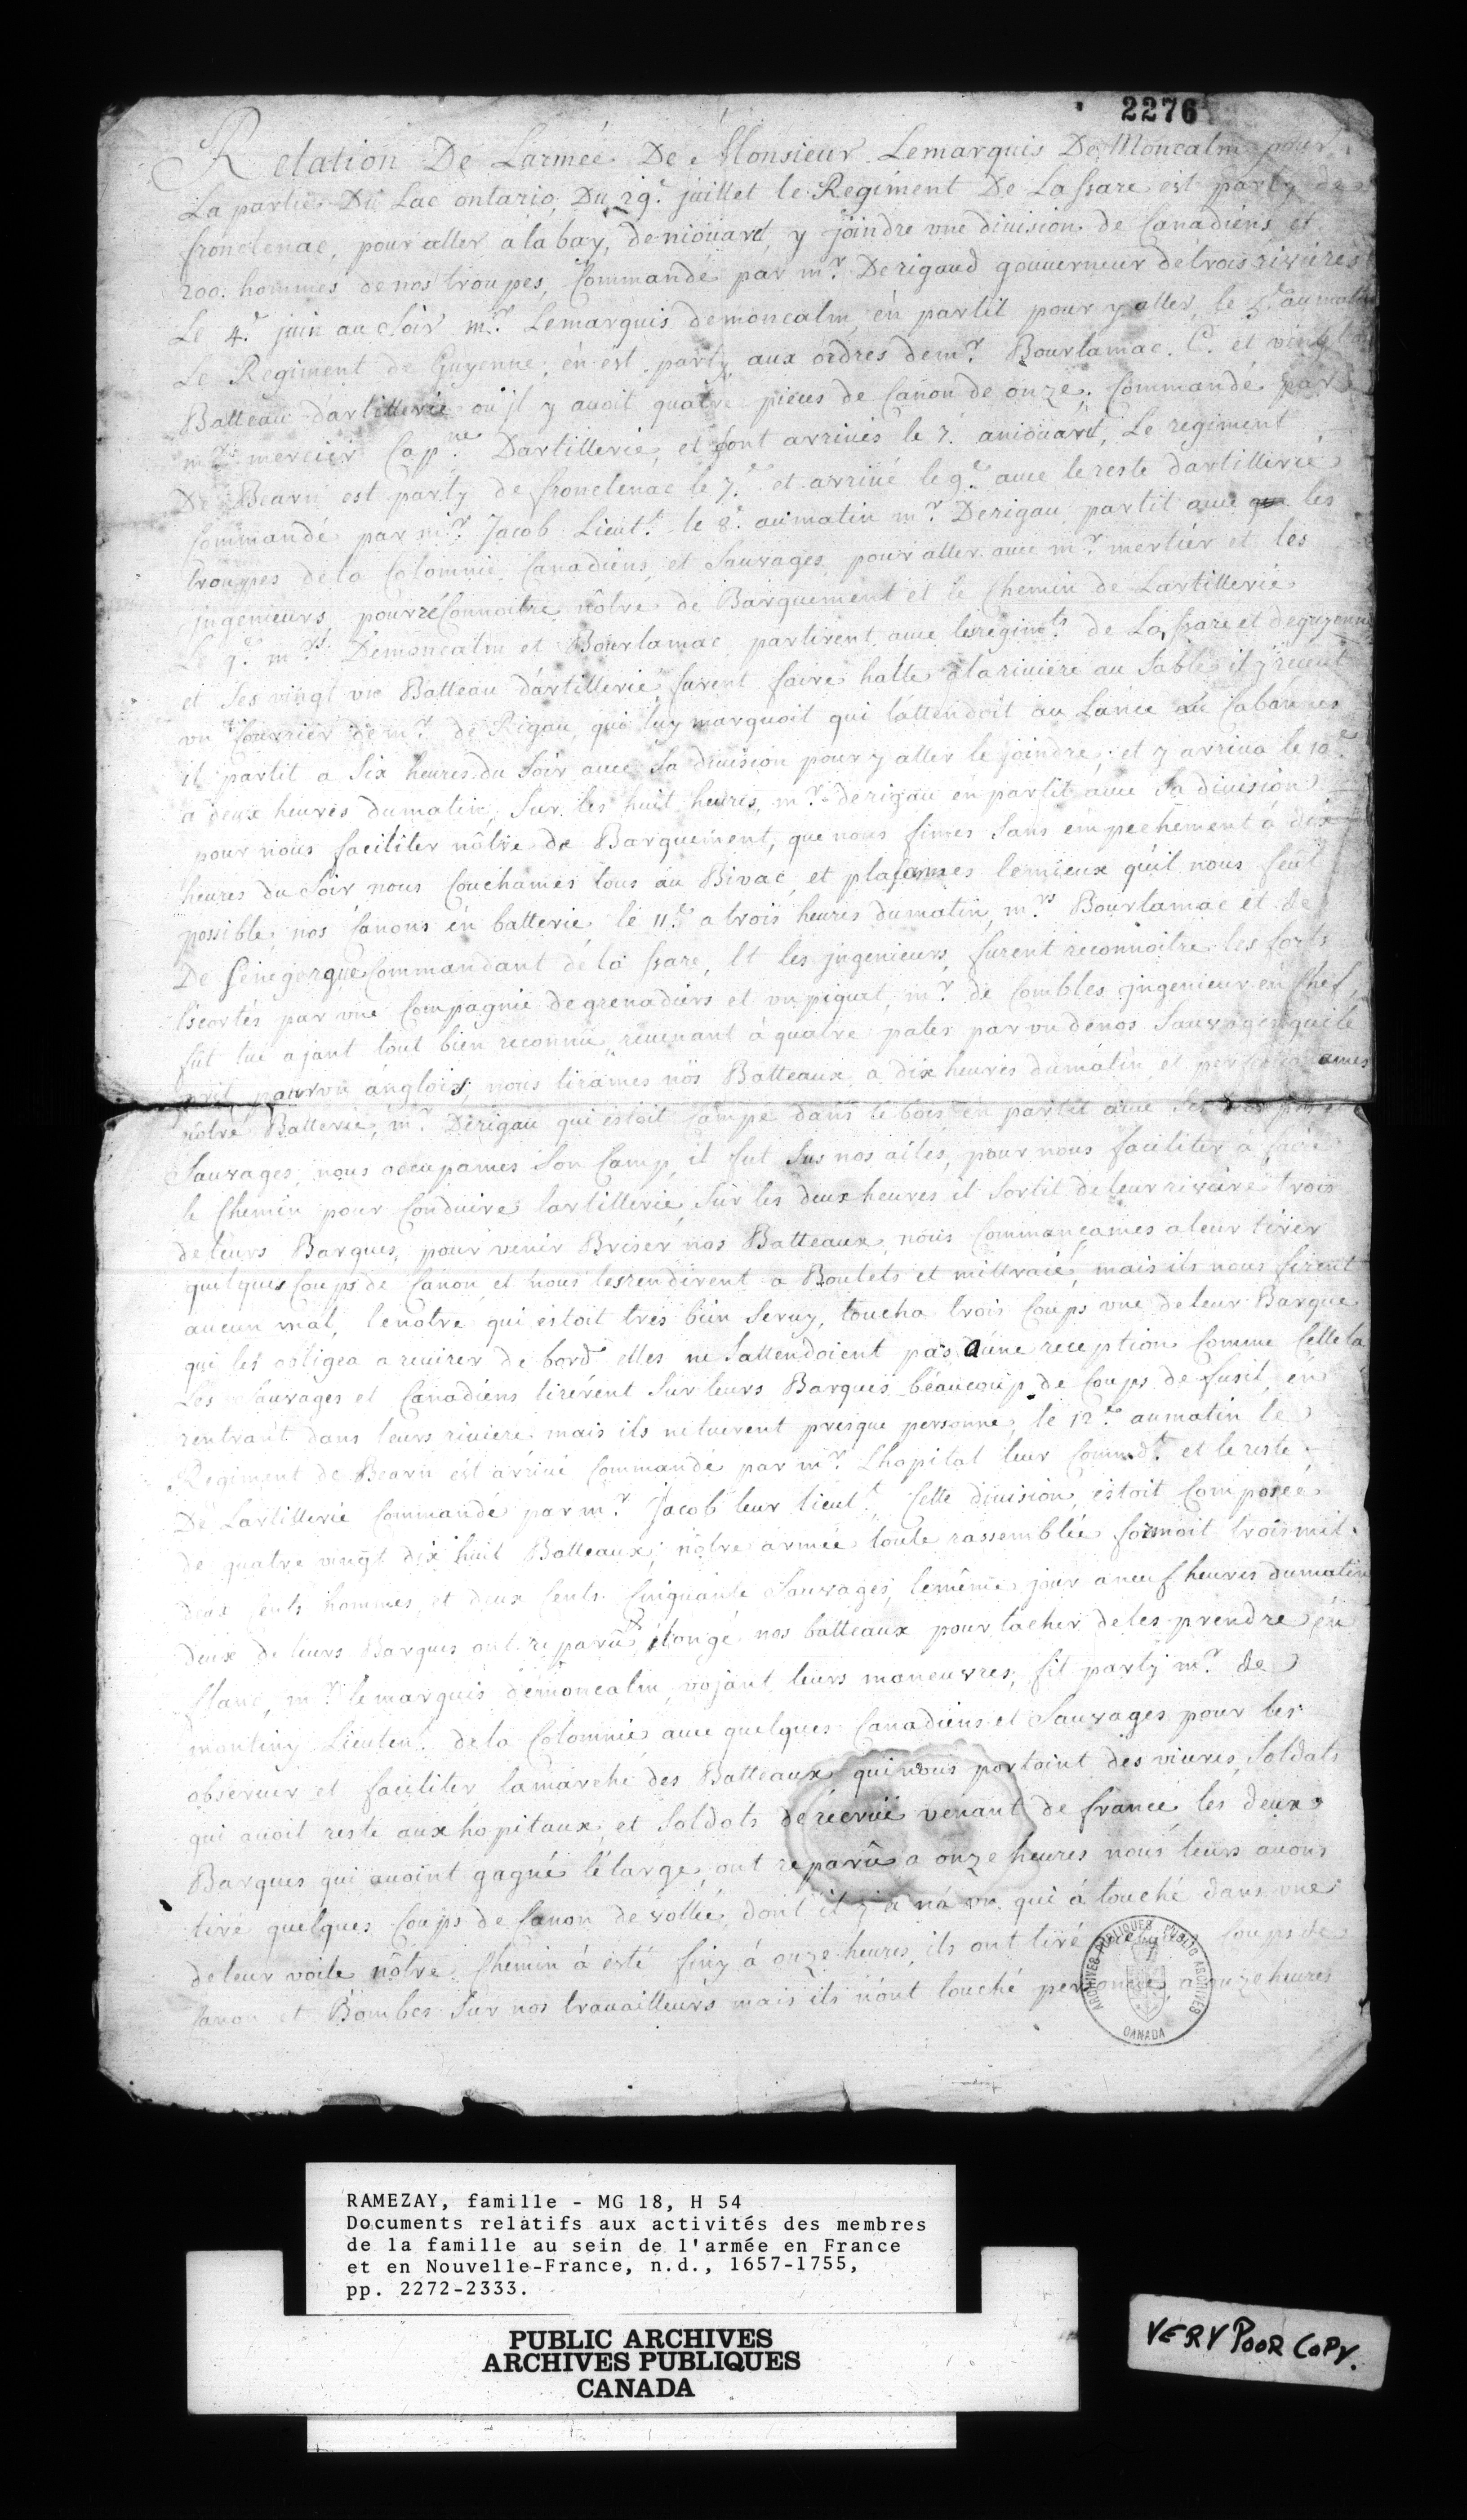 2276
Relation De Larmée De Monsieur Lemarquis De Moncalm pour
La partie Du Lac ontario, Du 29.e juillet le Regiment De La ssare est party de
fronctenac, pour aller a la bay, de niouaré, y joindre vne diuision de Canadiens et
200. hommes de nos troupes, Commandé par mr. Derigaud gouuerneur detrois riviéres
Le 4.e juin au soir mr. Lemarquis demoncalm, en partit pour y aller, le 5.e aumatin
Le Regiment de Guyenne, en est party, aux ordres de mr. Bourlamac. C. et vingt
Batteau dartillerie ou jl y auoit quatre pieces de Canon de onze, Commandé par
mr. mercier Cap.ne Dartillerie, et sont arriués le 7. aniouaré, Le regiment
De Bearn est party de fronctenac le 7.e et arriué le 9.e auec le reste dartillerie
Commandé par mr. Jacob Lieut.t le 8.e aumatin mr. Derigau partit auec les
trouppes dela Colonnie, Canadiens, et Sauvages, pour aller auec mr. mertiér et les
jngenieurs pour réConnoitre nôtre de Barquement et le Chemin de Lartillerie
Le 9.e mrs. Demoncalm et Bourlamac partirent auec les regimts de La ssare et deguyenne
et ses vingt vn Batteau dartillerie furent faire halte alariviere au Sable il y receut
vn Courrier de mr. de Rigau, qui luy marquoit qui lattendoit au Lance au Cabannes
il partit a Six heures du Soir auec Sa diuision pour y aller le joindre, et y arriua le 10.e
a deux heures dumatin, Sur les huit heures, mr. derigau en partit auec Sa diuision
pour nous faciliter nôtre de Barquement, que nous fimes Sans empechement a dix
heures du Soir nous Couchames tous au Bivac, et plasames lemieux quil nous feût
possible, nos Canons en batterie, le 11.e a trois heures dumatin, mrs Bourlamac et de
De Senégergue Commandant de la ssare, Et les jngenieurs, furent reconnoitre les forts
Escortés par vne Compagnie degrenadiers et vn piquet, mr. de Combles jngenieur en Chef,
fût tué ajant tout bien reconnu, reuenant à quatre pates par vn denos Sauvages qui le
prit pour vn anglois, nous tirames nos Batteaux a dix heures dumatin et perfectionames
nôtre Batterie, mr. Derigau qui estoit Campé dans le bois en partit auec Ses
Sauvages, nous occupames Son Camp, il fut Sus nos ailes, pour nous faciliter à faire
le Chemin pour Conduire lartillerie, Sur les deux heures il Sortit deleur riviere trois
deleurs Barques, pour venir Briser nos Batteaux, nous Commançames aleur tirer
quelques Coups de Canon, et nous les rendirent a Boulets et mittraie, mais ils nous firent
aucun mal, lenotre qui estoit tres bien Seruy, toucha trois Coups vne deleur Barque
qui les obligea a reuirer de bord elles ne Sattendoient pas aune reception Comme Cettela
Les Sauvages et Canadiens tirérent Sur leurs Barques beaucoup de Coups de fusil, en
rentrant dans leurs riviere mais ils netuerent presque personne, le 12.e aumatin le
Regiment de Bearn est arriué Commandé par mr. Lhopital leur Comdt. et le reste
De Lartillerie Commandé par mr. Jacob leur lieut.t Cette diuision, estoit Composée
de quatre vingt dix huit Batteaux, nôtre armée toute rassemblée formoit trois mil
deux Cents hommes, et deux Cents Cinquante Sauvages, lemême jour aneuf heures dumatin
deux de leurs Barques ont reparû élongé nos batteaux pour tacher deles prendre en
flanc, mr. lemarquis demoncalm, vojant leurs maneuvres, fit party mr. de
montiny Lieuten.t dela Colonnie auec quelques Canadiens et Sauvages pour les
obseruer et faciliter lamarche des Batteaux qui nous portoint des viures, Soldats
qui auoit resté aux hopitaux, et Soldats derécruë venant de france, les deux
Barques qui auoint gagné lélarge, ont reparûe a onze heures nous leurs auons
tiré quelques Coups de Canon de vollée, dont il y en a vn qui à touché dans vne
deleur voile, nôtre Chemin à esté finy à onze heures, ils ont tiré Coups de
Canon et Bombes Sur nos trauailleurs mais ils nónt touché personne, a onze heures
ARCHIVES PUBLIQUES PUBLIC ARCHIVES
CANADA
RAMEZAY, famille - MG 18, H 54
Documents relatifs aux activités des membres
de la famille au sein de l'armée en France
et en Nouvelle-France, n.d., 1657-1755,
pp. 2272-2333.
PUBLIC ARCHIVES
ARCHIVES PUBLIQUES
CANADA
VERY POOR COPY.